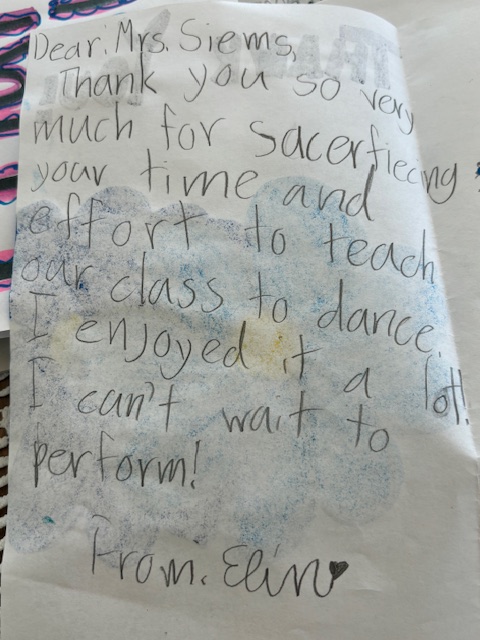 Dear, Mrs. Siems,
Thank you so very
much for sacerfiecing
your time and
effort to teach
our class to dance.
I enjoyed it a lot!
I can't wait to
perform!
From, Elin